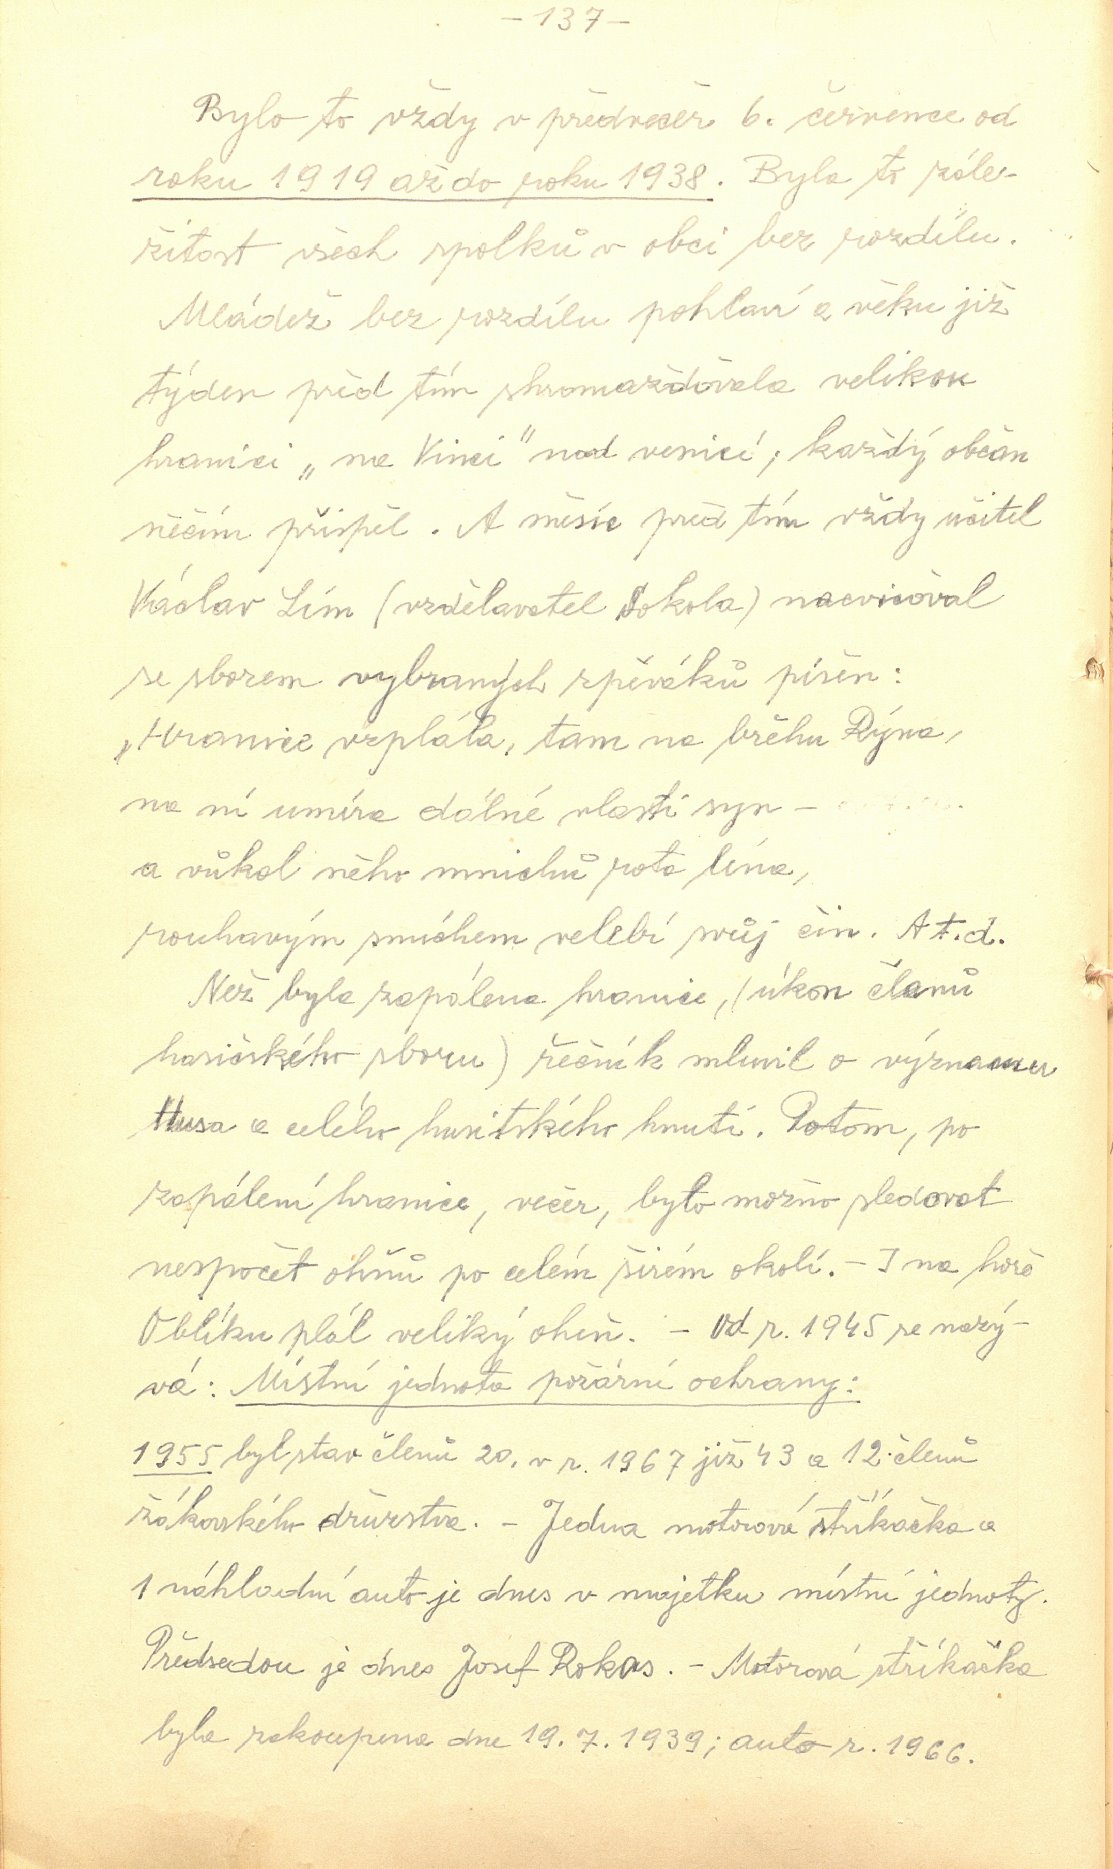 - 137 -
Bylo to vždy v předvečer 6. července od
roku 1919 až do roku 1938. Byla to zále-
žitost všech spolků v obci bez rozdílu.
Mládež bez rozdílu pohlaví a věku již
týden před tím shromažďovala velikou
hranici „na Vinci" nad vesnicí; každý občan
něčím přispěl. A měsíc před tím vždy učitel
Václav Lím (vzdělavatel Sokola) nacvičoval
se sborem vybraných zpěváků píseň:
„Hranice vzplála, tam na břehu Rýna,
na ní umírá dálné vlasti syn -
a vůkol něho mnichů rota líná,
rouhavým smíchem velebí svůj čin. At.d.
Než byla zapálena hranice, (úkon členů
hasičského sboru) řečník mluvil o významu
Husa a celého husitského hnutí. Potom, po
zapálení hranice, večer, bylo možno sledovat
nespočet ohňů po celém širém okolí. - I na hoře
Oblíku plál veliký oheň. - Od r. 1945 se nazý-
vá: Místní jednota požární ochrany:
1955 byl stav členů 20, v r. 1967 již 43 a 12 členů
žákovského družstva. - Jedna motorová stříkačka a
1 náhladní auto je dnes v majetku místní jednoty.
Předsedou je dnes Josef Rokos. - Motorová stříkačka
byla zakoupena dne 19. 7. 1939; auto r. 1966.